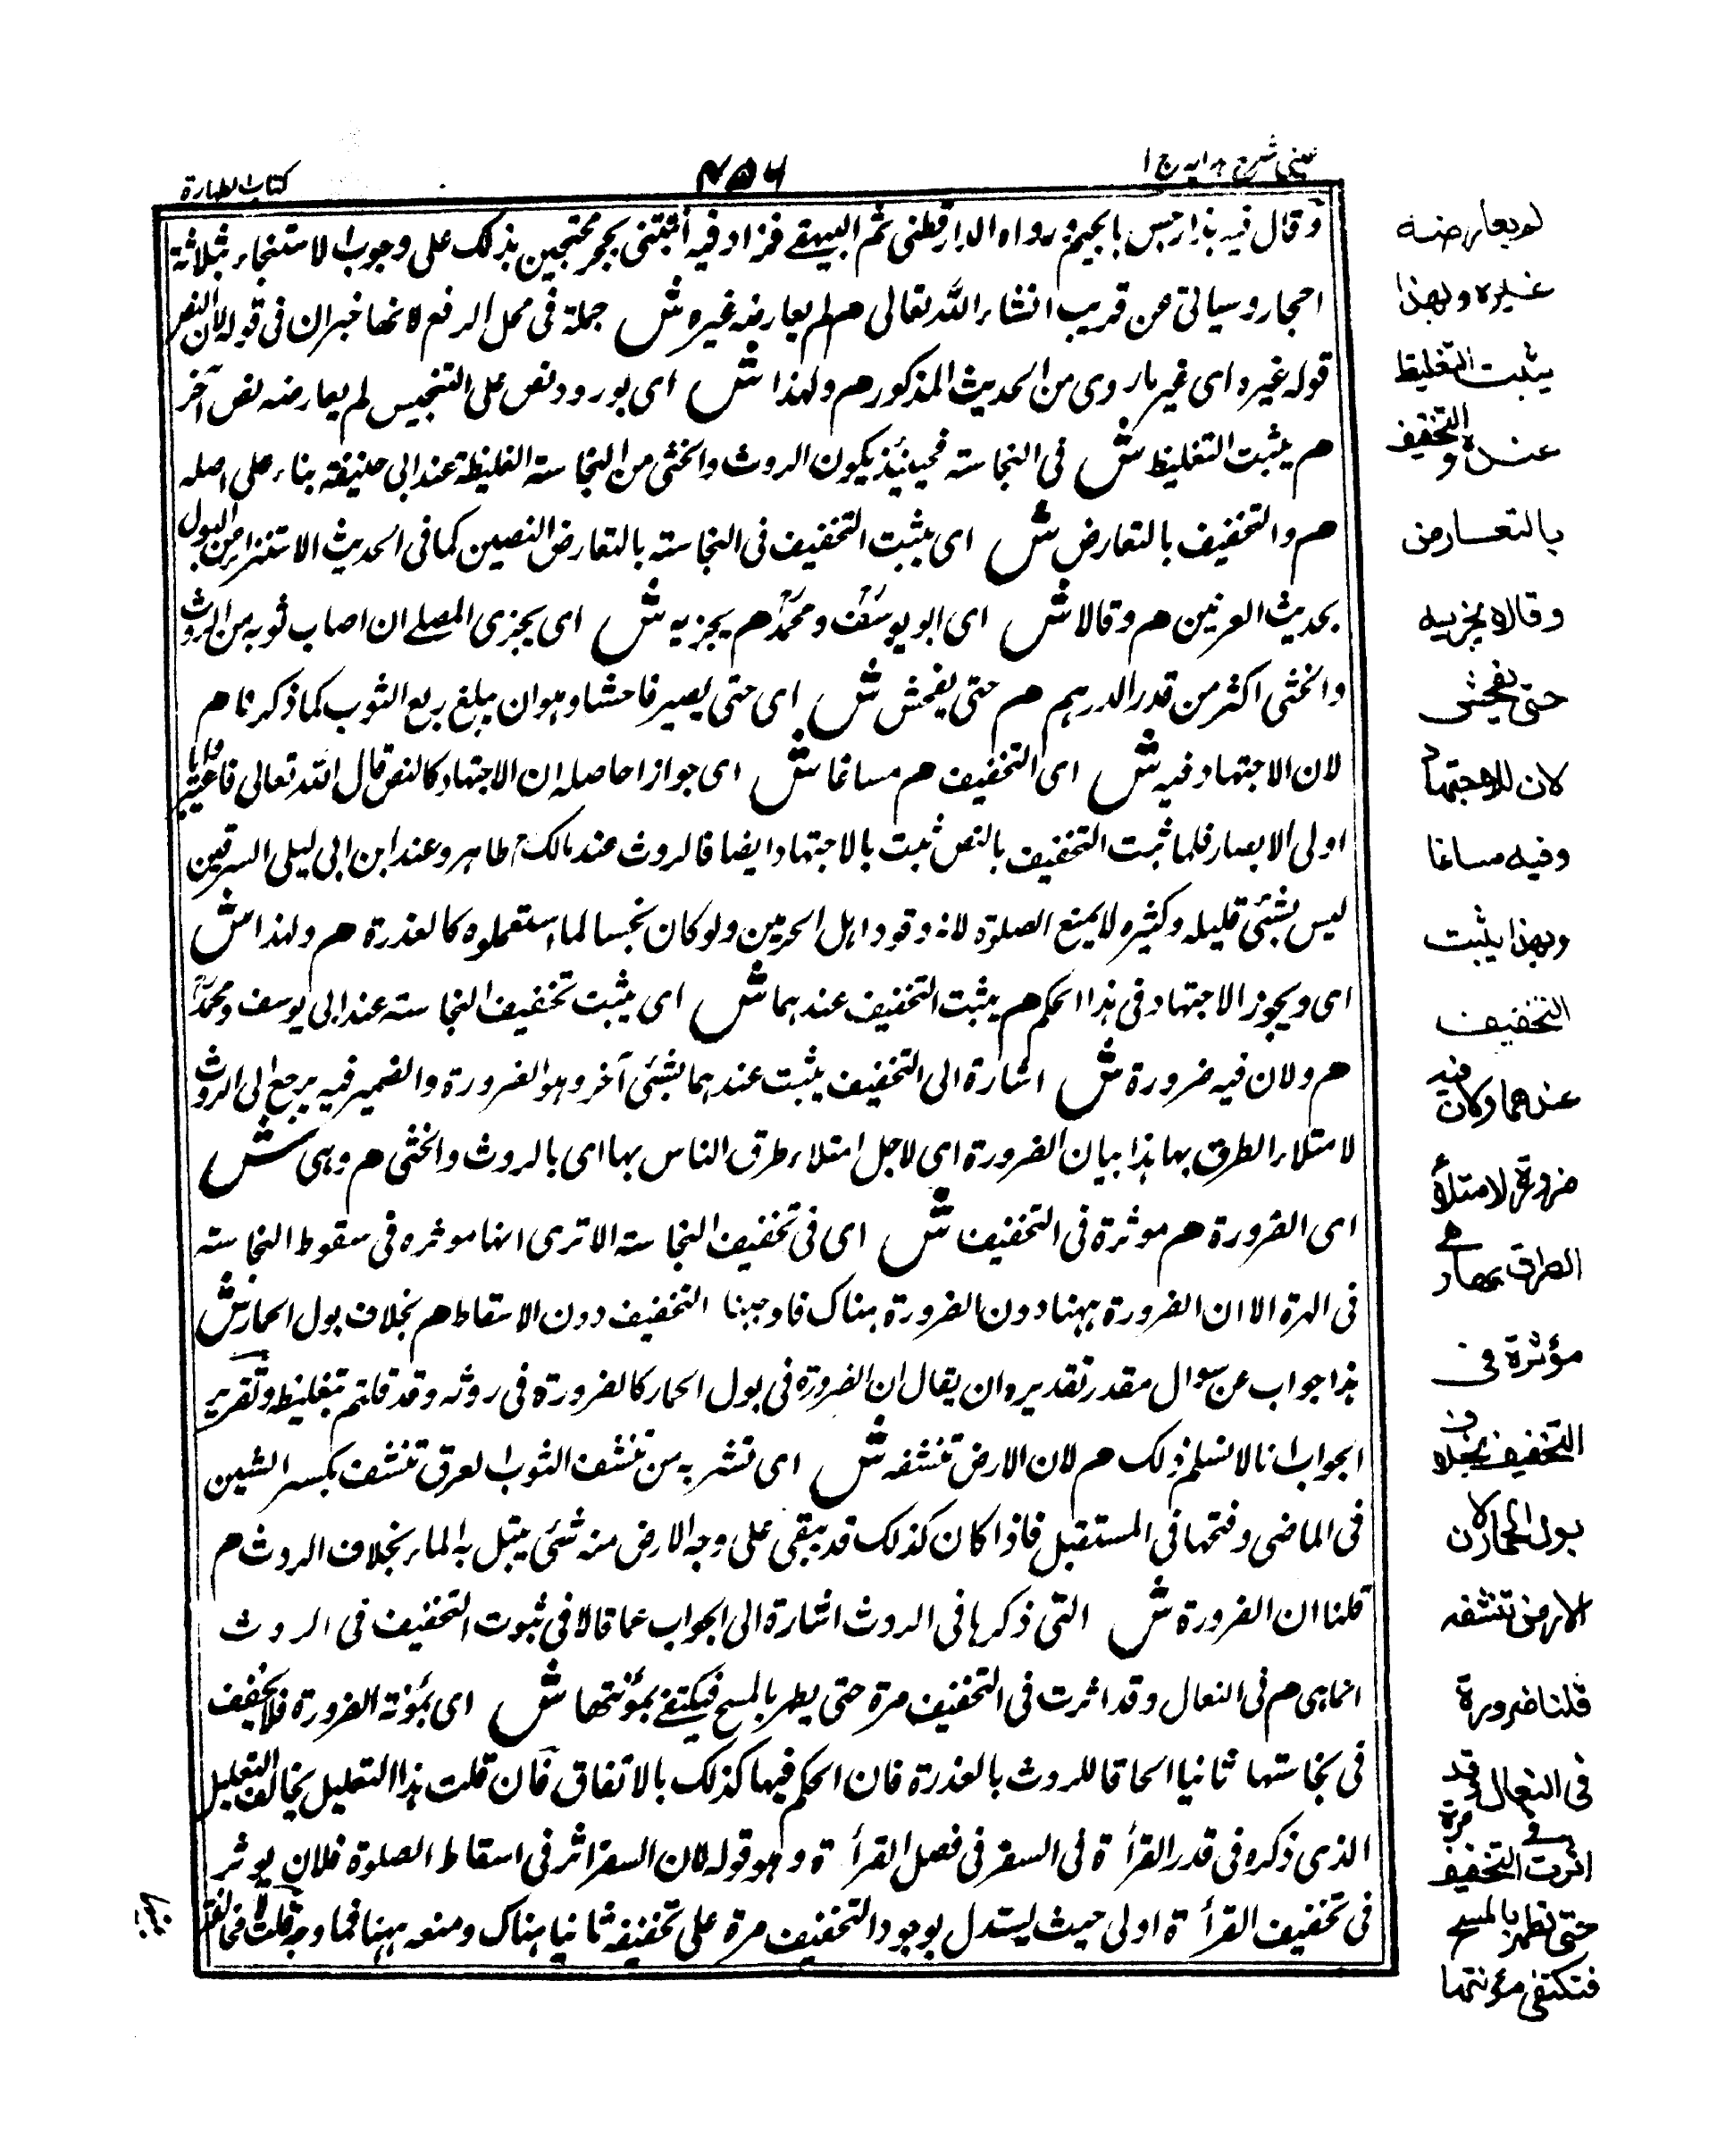 عینی شرح ہدایہ ج ۱
۷۵۶
کتاب الطہارة
وقال فيه ہذا رجس بالجيم ورواه الدارقطنی ثم البيهقے فزاد فيه ائتنی بحجر محتجين بذلك علی وجوب الاستنجاء بثلاثة
احجار وسياتی عن قريب انشاء اللہ تعالی ھم لم يعارضه غيره ش جملة فی محل الرفع لانها خبر ان فی قوله لان النص
قوله غيره ای غير ما روی من الحديث المذكور ھم ولهذا ش ای بورود نص علی التنجيس لم يعارضه نص آخر
ھم يثبت التغليظ ش فی النجاسته فحينئذ يكون الروث والخثی من النجاسته الغليظة عند ابی حنيفة بناء علی اصله
ھم والتخفيف بالتعارض ش ای يثبت التخفيف فی النجاسته بالتعارض النصين كما فی الحديث الاستنزاه من البول
بحديث العرنيين ھم وقالا ش ای ابو يوسف ومحمد ھم يجزيه ش ای يجزی المصلے ان اصاب ثوبه من الروث
والخثی اكثر من قدر الدرہم ھم حتی يفحش ش ای حتی يصير فاحشا وہو ان يبلغ ربع الثوب كما ذكرنا ھم
لان الاجتهاد فيه ش ای التخفيف ھم مساغا ش ای جوازا حاصله ان الاجتهاد كالنص قال اللہ تعالی فاعتبروا يا
اولی الابصار فلما ثبت التخفيف بالنص ثبت بالاجتهاد ايضا فالروث عند مالك طاہر وعند ابن ابی ليلی السرقين
ليس بشئی قليله وكثيره لا يمنع الصلوة لانه وقود اہل الحرمين ولو كان نجسا لما استعملوه كالعذرة ھم ولهذا ش
ای ويجوز الاجتهاد فی ہذا الحكم ھم يثبت التخفيف عندہما ش ای يثبت تخفيف النجاسته عند ابی يوسف ومحمد
ھم ولان فيه ضرورة ش اشارة الی التخفيف يثبت عندہما بشئی آخر وہو الضرورة والضمير فيه يرجع الی الروث
لامتلاء الطرق بها ہذا بيان الضرورة ای لاجل امتلاء طرق الناس بها ای بالروث والخثی ھم وہی ش
ای الضرورة ھم موثرة فی التخفيف ش ای فی تخفيف النجاسته الا تری انها موثره فی سقوط النجاسته
فی الهرة الا ان الضرورة ہہنا دون الضرورة ہناك فاوجبنا التخفيف دون الاسقاط ھم بخلاف بول الحمار ش
ہذا جواب عن سوال مقدر تقديره ان يقال ان الضرورة فی بول الحمار كالضرورة فی روثه وقد قلتم بتغليظه وتقرير
الجواب انا لا نسلم ذلك ھم لان الارض تنشفه ش ای تشربه من تنشف الثوب العرق تنشف بكسر الشين
فی الماضی وفتحها فی المستقبل فاذا كان كذلك قد يبقی علی وجه الارض منه شئی يبتل به الماء بخلاف الروث ھم
قلنا ان الضرورة ش التی ذكرہا فی الروث اشارة الی الجواب عما قالا فی ثبوت التخفيف فی الروث
انما ہی ھم فی النعال وقد اثرت فی التخفيف مرة حتی يطهر بالمسح فيكتفے بمؤنتها ش ای بمؤنة الضرورة فلا يخفف
فی نجاستها ثانيا الحاقا للروث بالعذرة فان الحكم فيها كذلك بالاتفاق فان قلت ہذا التعليل يخالف التعليل
الذی ذكره فی قدر القرأة فی السفر فی فصل القرأة وہو قوله لان السفر اثر فی اسقاط الصلوة فلان يوثر
فی تخفيف القرأة اولی حيث يستدل بوجود التخفيف مرة علی تخفيفه ثانيا ہناك ومنعه ہہنا فما وجه قلت
لم يعارضه
غيره وبهذا
يثبت التغليظ
عنده والتخفيف
بالتعارض
وقالا يجزيه
حتی يفحش
لان للاجتهاد
وفيه مساغا
وبهذا يثبت
التخفيف
عندهما ولان فيه
ضرورة لامتلاء
الطرق بها وهے
مؤثرة فی
التخفيف بخلاف
بول الحمار لان
الارض تنشفه
قلنا ضرورة
فی النعال وقد
اثرت فے التخفيف مرة
حتی تطهر بالمسح
فتكتفی مؤنتها